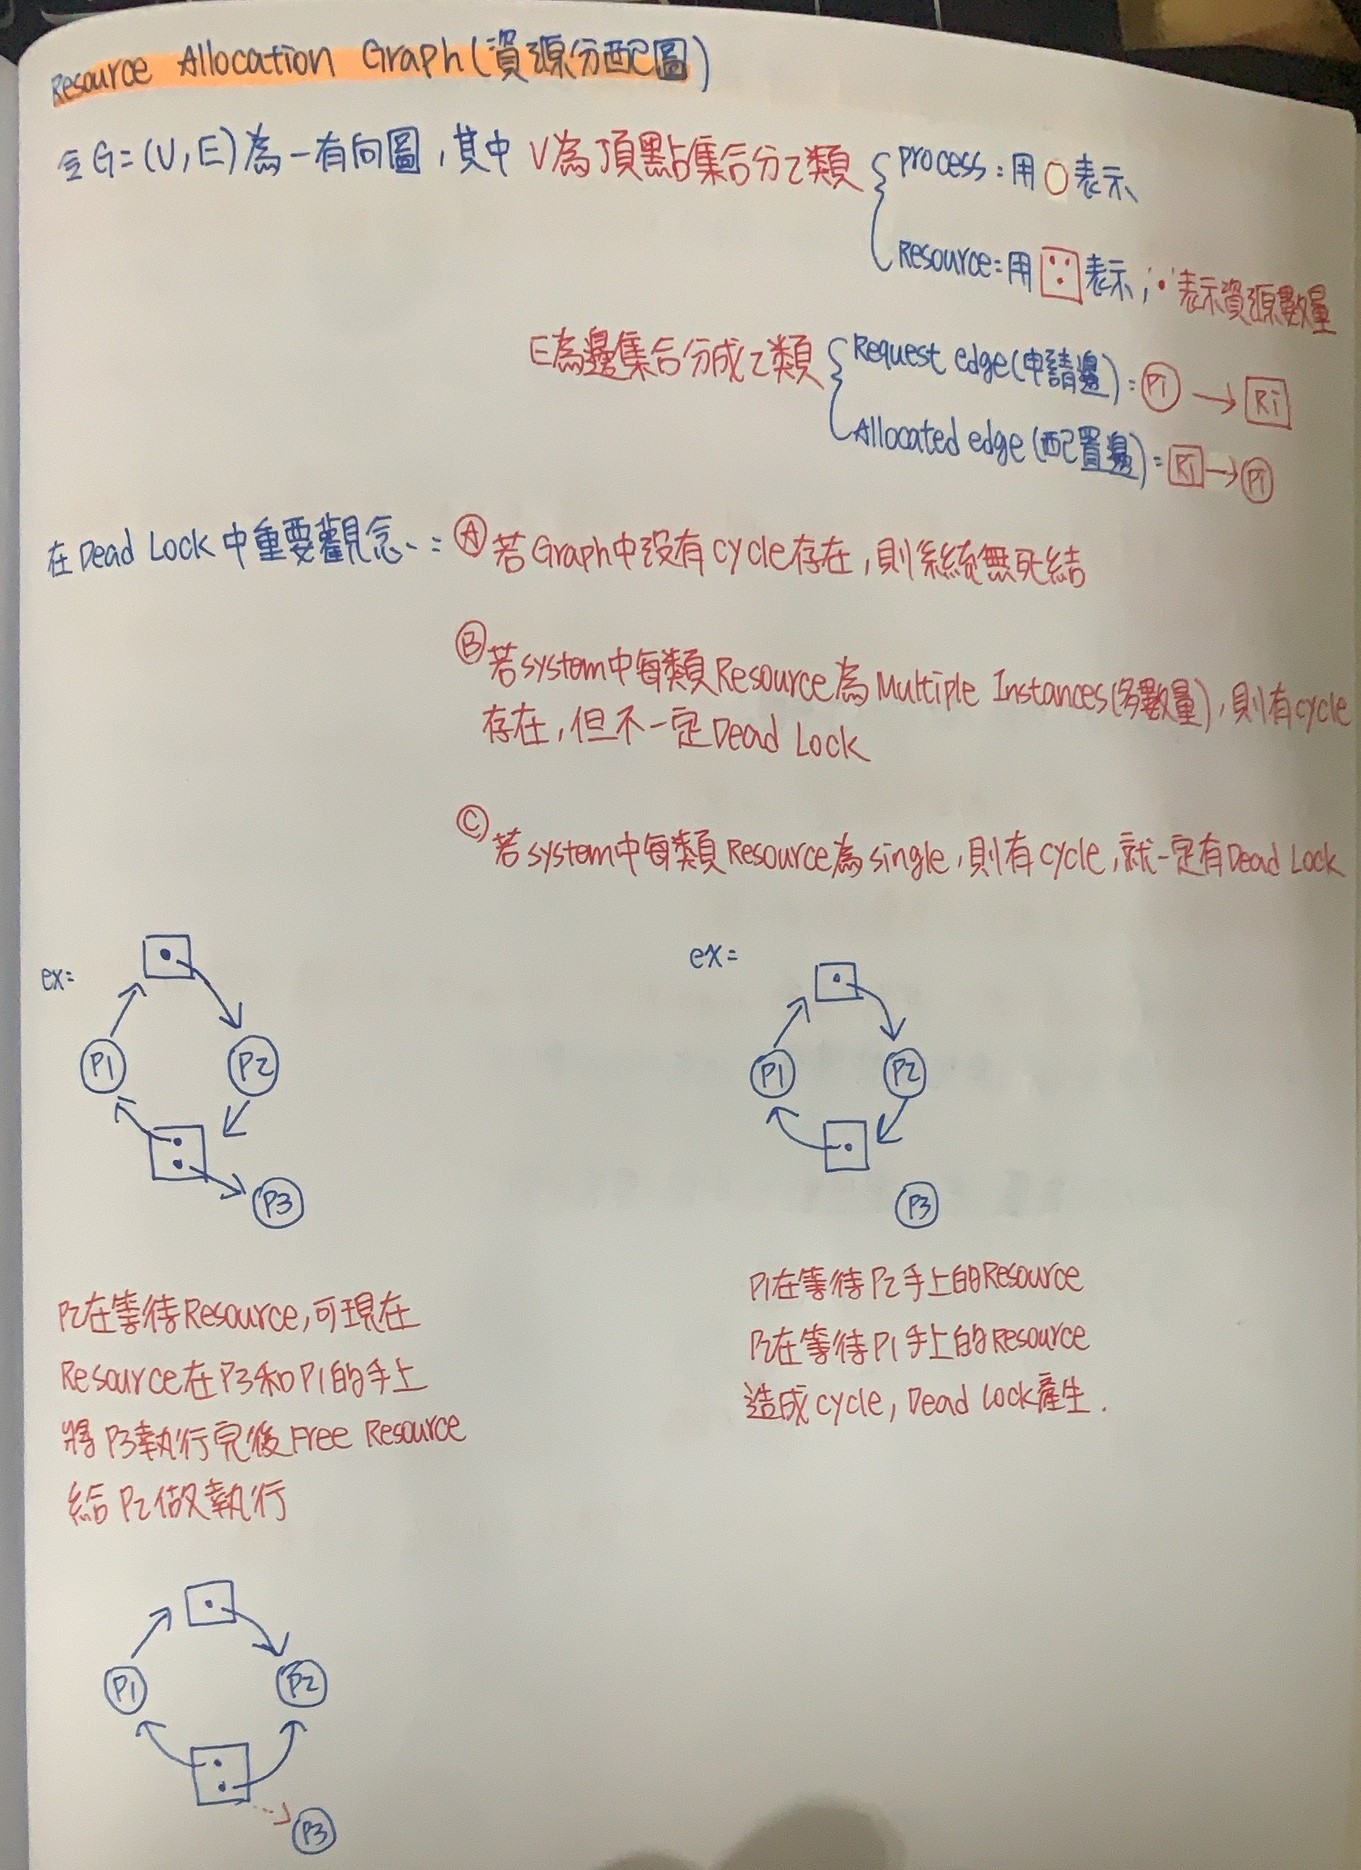 Resource Allocation Graph(資源分配圖)
令G=(V,E)為一有向圖,其中 V為頂點集合分2類
process:用○表示
Resource:用 表示,'•'表示資源數量
E為邊集合分成2類
Request edge(申請邊): Pi → Ri
Allocated edge(配置邊): Ri → Pi
在Dead Lock中重要觀念:
Ⓐ若Graph中沒有cycle存在,則系統無死結
Ⓑ若system中每類Resource為Multiple Instances(多數量),則有cycle
存在,但不一定Dead Lock
Ⓒ若system中每類Resource為single,則有cycle,就一定有Dead Lock
ex:
P1
P2
P3
P2在等待Resource,可現在
Resource在P3和P1的手上
將P3執行完後Free Resource
給P2做執行
P1
P2
P3
ex:
P1
P2
P3
P1在等待P2手上的Resource
P2在等待P1手上的Resource
造成cycle, Dead Lock產生.